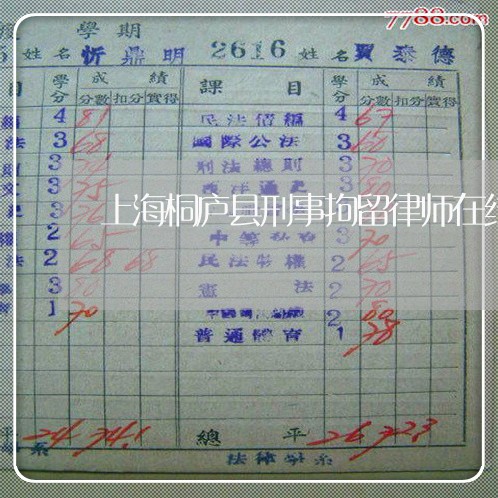 7788.com
學期
5 姓名 忻鼎明 2616 姓名 賈泰德
目 學分 成績 課目 學分 成績
分數 扣分 實得 分數 扣分 實得
4 81 民法債編 4 67
法 3 68 國際公法 3 60
3 刑法總則 3 70
3 75 西洋通史 3 80
上海桐庐县刑事拘留律师在线
2 65 3 70
法 2 68 68 民法物權 2 65
3 80 憲法 2 70
1 70 2 80
普通體育 1 78
平 24 74.1 總平 26 72.3
系 法律學系